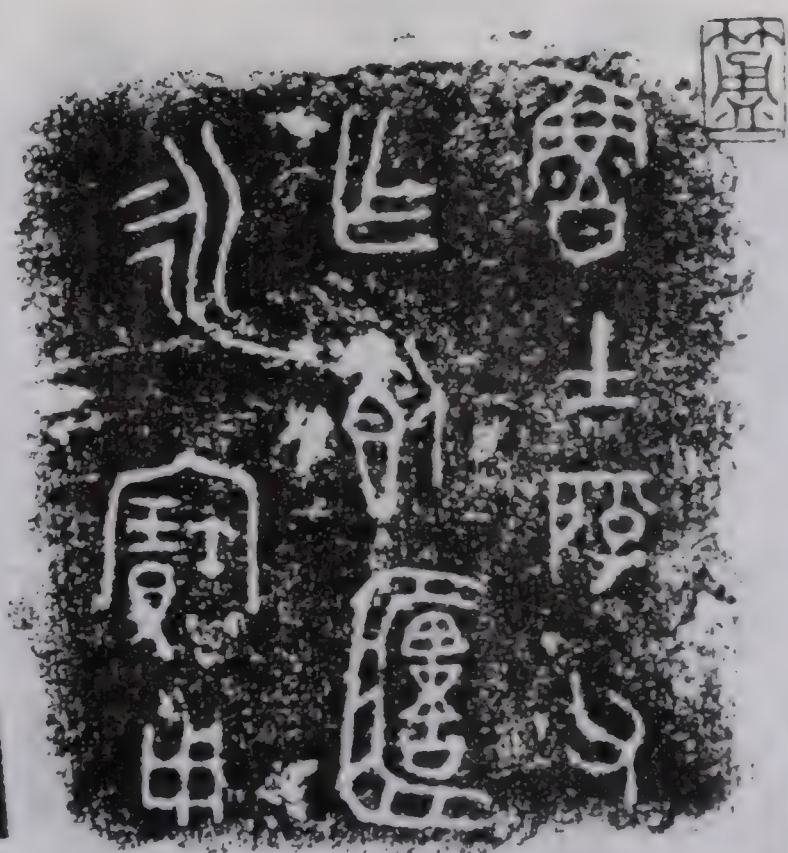 魯士父
乍飤簠
永寶用